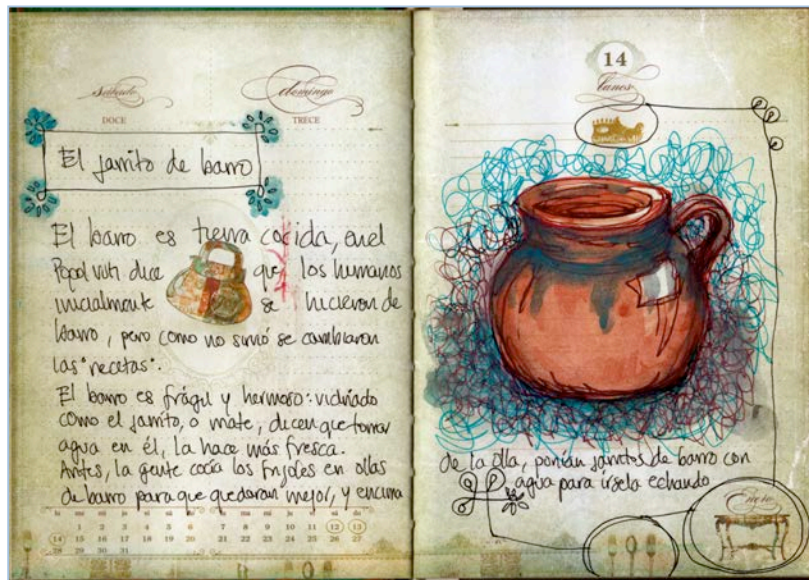 sábado
domingo
DOCE
TRECE
El jarrito de barro
El barro es tierra cocida, en el
Popol vuh dice que los humanos
inicialmente se hicieron de
barro, pero como no sirvió se cambiaron
las "recetas".
El barro es frágil y hermoso: vidriado
como el jarrito, o mate, dicen que tomar
agua en él, la hace más fresca.
Antes, la gente cocía los frijoles en ollas
de barro para que quedaran mejor, y encima
lu ma mi ju vi sá do lu ma mi ju vi sá do
1 2 3 4 5 6 7 8 9 10 11 12 13
14 15 16 17 18 19 20 21 22 23 24 25 26 27
28 29 30 31
14
lunes
de la olla, ponían jarritos de barro con
agua para írsela echando
Enero